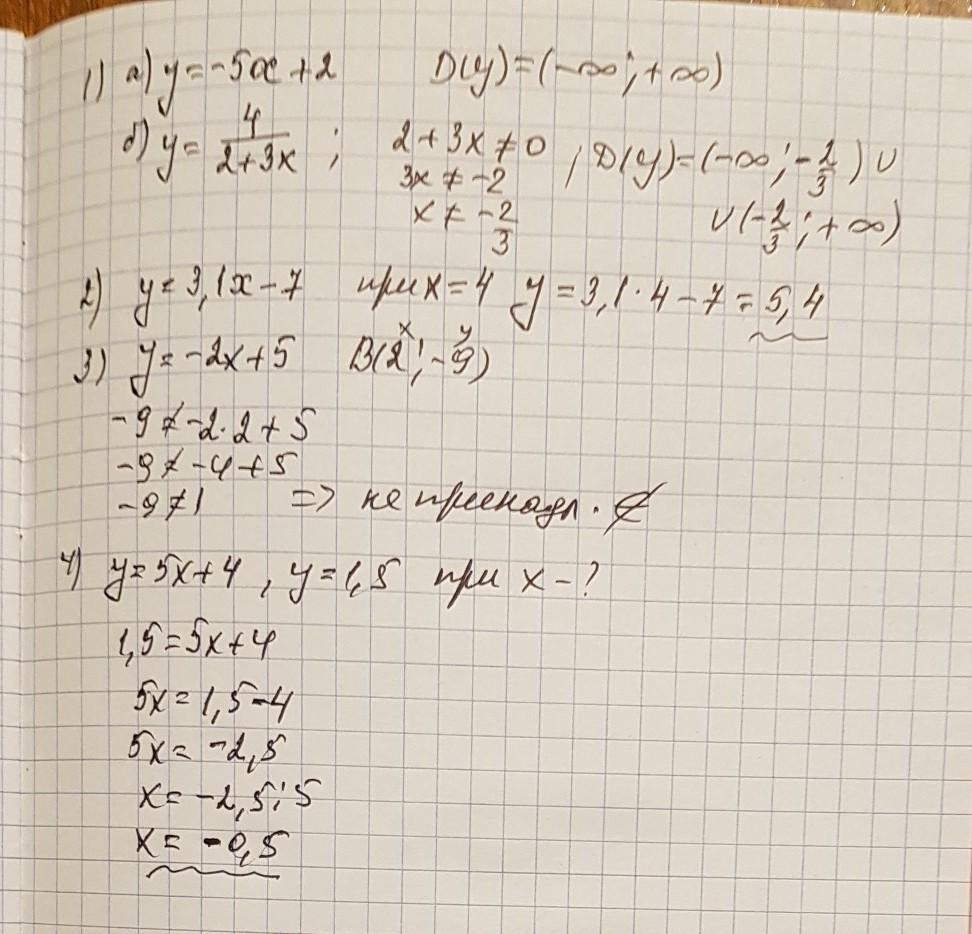 1) а) y = -5x + 2 D(y) = (-∞; +∞)
б) y = 4/(2+3x) ; 2 + 3x ≠ 0 , D(y) = (-∞; -2/3) ∪
3x ≠ -2
x ≠ -2/3 ∪ (-2/3; +∞)
2) y = 3,1x - 7 при x = 4 y = 3,1 · 4 - 7 = 5,4
x y
3) y = -2x + 5 B(2; -9)
-9 ≠ -2 · 2 + 5
-9 ≠ -4 + 5
-9 ≠ 1 => не принадл. ∉
4) y = 5x + 4 , y = 1,5 при x - ?
1,5 = 5x + 4
5x = 1,5 - 4
5x = -2,5
x = -2,5 : 5
x = -0,5